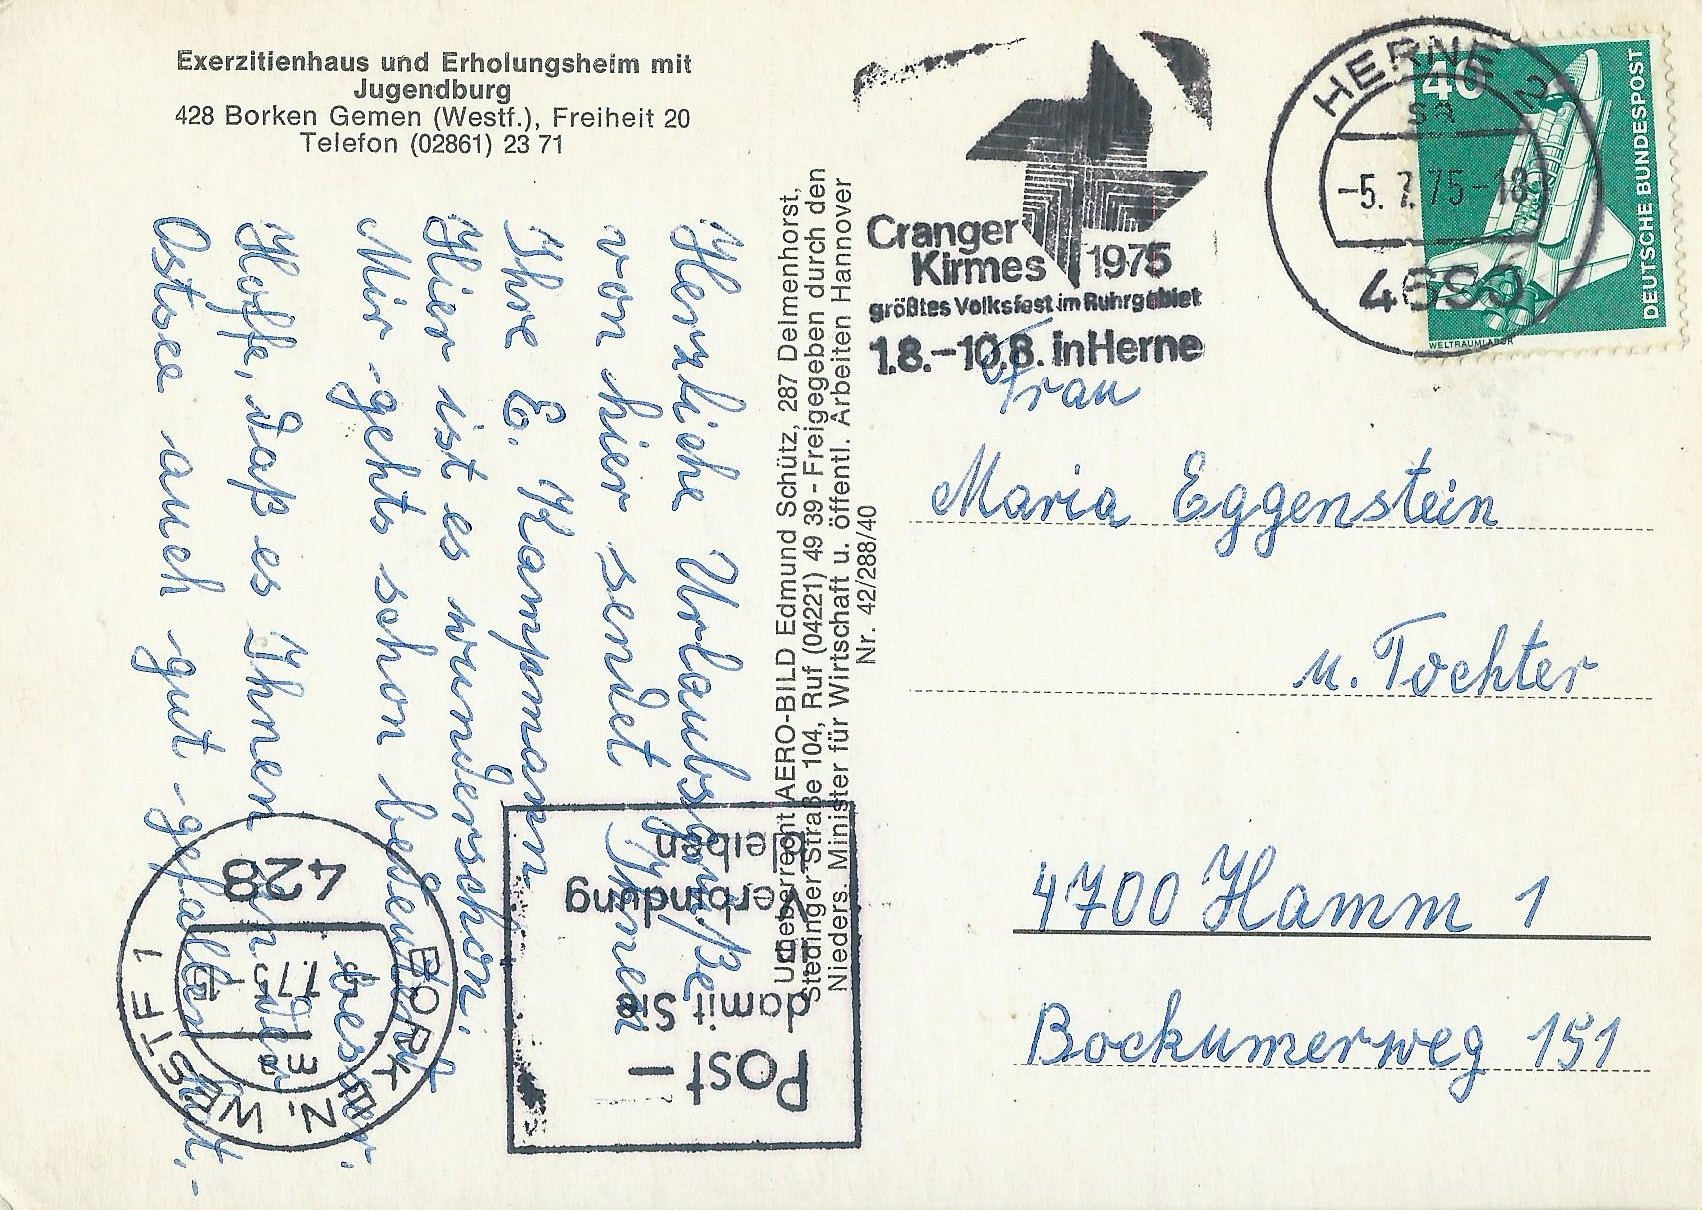 Exerzitienhaus und Erholungsheim mit
Jugendburg
428 Borken Gemen (Westf.), Freiheit 20
Telefon (02861) 23 71
Herzliche Urlaubsgrüße
von hier sendet Ihnen
Ihre E. Kampmann
Hier ist es wunderschön.
Mir gehts schon bedeutend
besser.
Hoffe, daß es Ihnen an der
Ostsee auch gut gefallen hat.-
Urheberrecht AERO-BILD Edmund Schütz, 287 Delmenhorst,
Stedinger Straße 104, Ruf (04221) 49 39 - Freigegeben durch den
Nieders. Minister für Wirtschaft u. öffentl. Arbeiten Hannover
Nr. 42/288/40
Cranger
Kirmes 1975
größtes Volksfest im Ruhrgebiet
1.8.-10.8. in Herne
HERNE 2
sa
-5.7.75-18
4690
40
DEUTSCHE BUNDESPOST
WELTRAUMLABOR
Frau
Maria Eggenstein
u. Tochter
4700 Hamm 1
Bockumerweg 151
Post-
damit Sie
in
Verbindung
bleiben
BORKEN, WESTF 1
ma
428